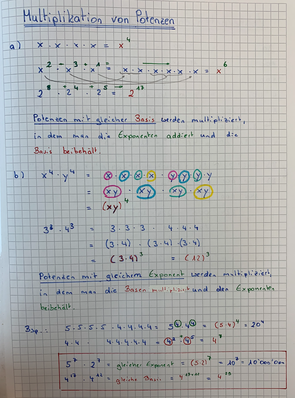 Multiplikation von Potenzen
a) x · x · x · x = x⁴
x² · x³ · x¹ = x · x · x · x · x · x = x⁶
2⁸ · 2⁴ · 2⁵ = 2¹⁷
Potenzen mit gleicher Basis werden multipliziert,
in dem man die Exponenten addiert und die
Basis beibehält.
b) x⁴ · y⁴ = x · x · x · x · y · y · y · y
= xy · xy · xy · xy
= (xy)⁴
3³ · 4³ = 3 · 3 · 3 · 4 · 4 · 4
= (3·4) · (3·4) · (3·4)
= (3·4)³ = (12)³
Potenzen mit gleichem Exponent werden multipliziert,
in dem man die Basen multipliziert und den Exponenten
beibehält.
Bsp.: 5·5·5·5 · 4·4·4·4 = 5⁴ · 4⁴ = (5·4)⁴ = 20⁴
4·4 · 4·4·4·4·4 = 4² · 4⁵ = 4⁷
5⁷ · 2⁷ = gleicher Exponent = (5·2)⁷ = 10⁷ = 10'000'000
= gleiche Basis =